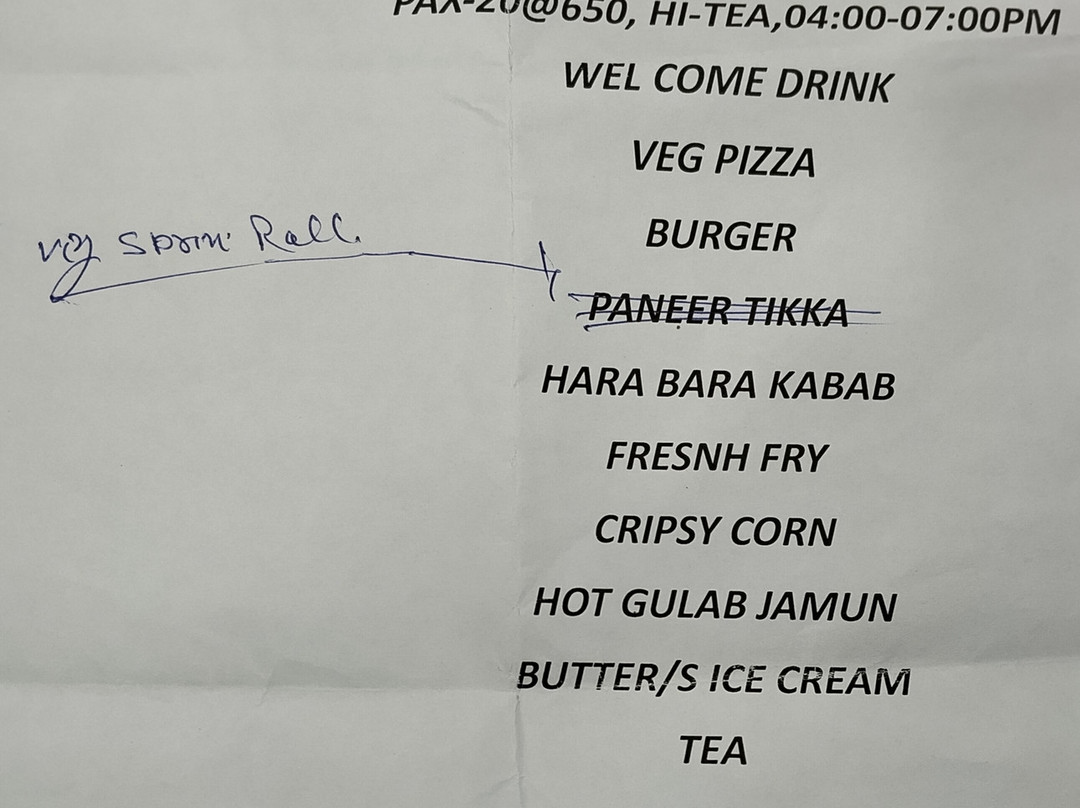 PAX-20@650, HI-TEA,04:00-07:00PM
WEL COME DRINK
VEG PIZZA
BURGER
veg Sprin Roll.
PANEER TIKKA
HARA BARA KABAB
FRESNH FRY
CRIPSY CORN
HOT GULAB JAMUN
BUTTER/S ICE CREAM
TEA